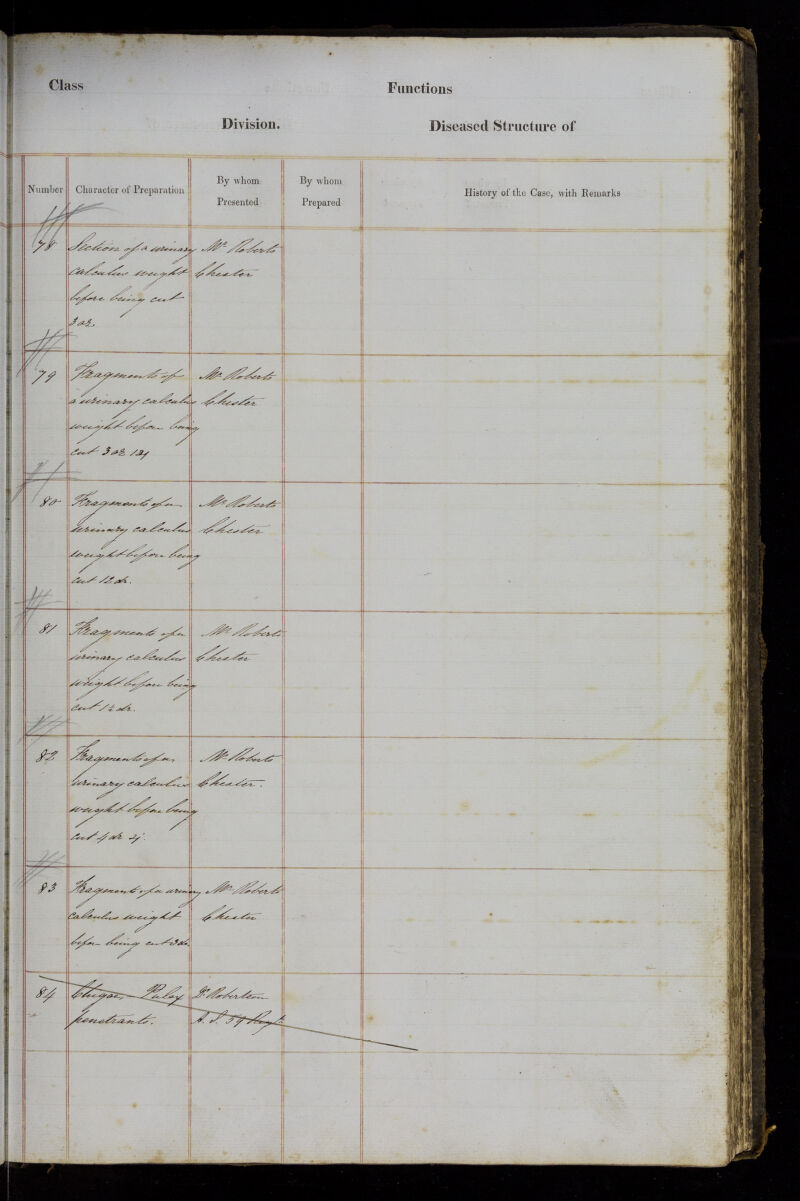 Class Functions
Division. Diseased Structure of
Number Character of Preparation By whom Presented By whom Prepared History of the Case, with Remarks
78 Section of a urinary Mr Roberts
calculus weight Chester
before being cut
3 oz.
79 Fragments of Mr Roberts
a urinary calculus Chester
weight before being
cut 3 oz
80 Fragments of a Mr Roberts
urinary calculus Chester
weight before being
cut 12 dr.
81 Fragments of a Mr Roberts
urinary calculus Chester
weight before being
cut 12 dr.
82 Fragments of a Mr Roberts
urinary calculus Chester.
weight before being
cut 4 dr
83 Fragments of a urinary Mr Roberts
calculus weight Chester
before being cut 3 dr.
84 Chigoe, Pulex Dr Robertson
penetrants. A. S. 59 Regt